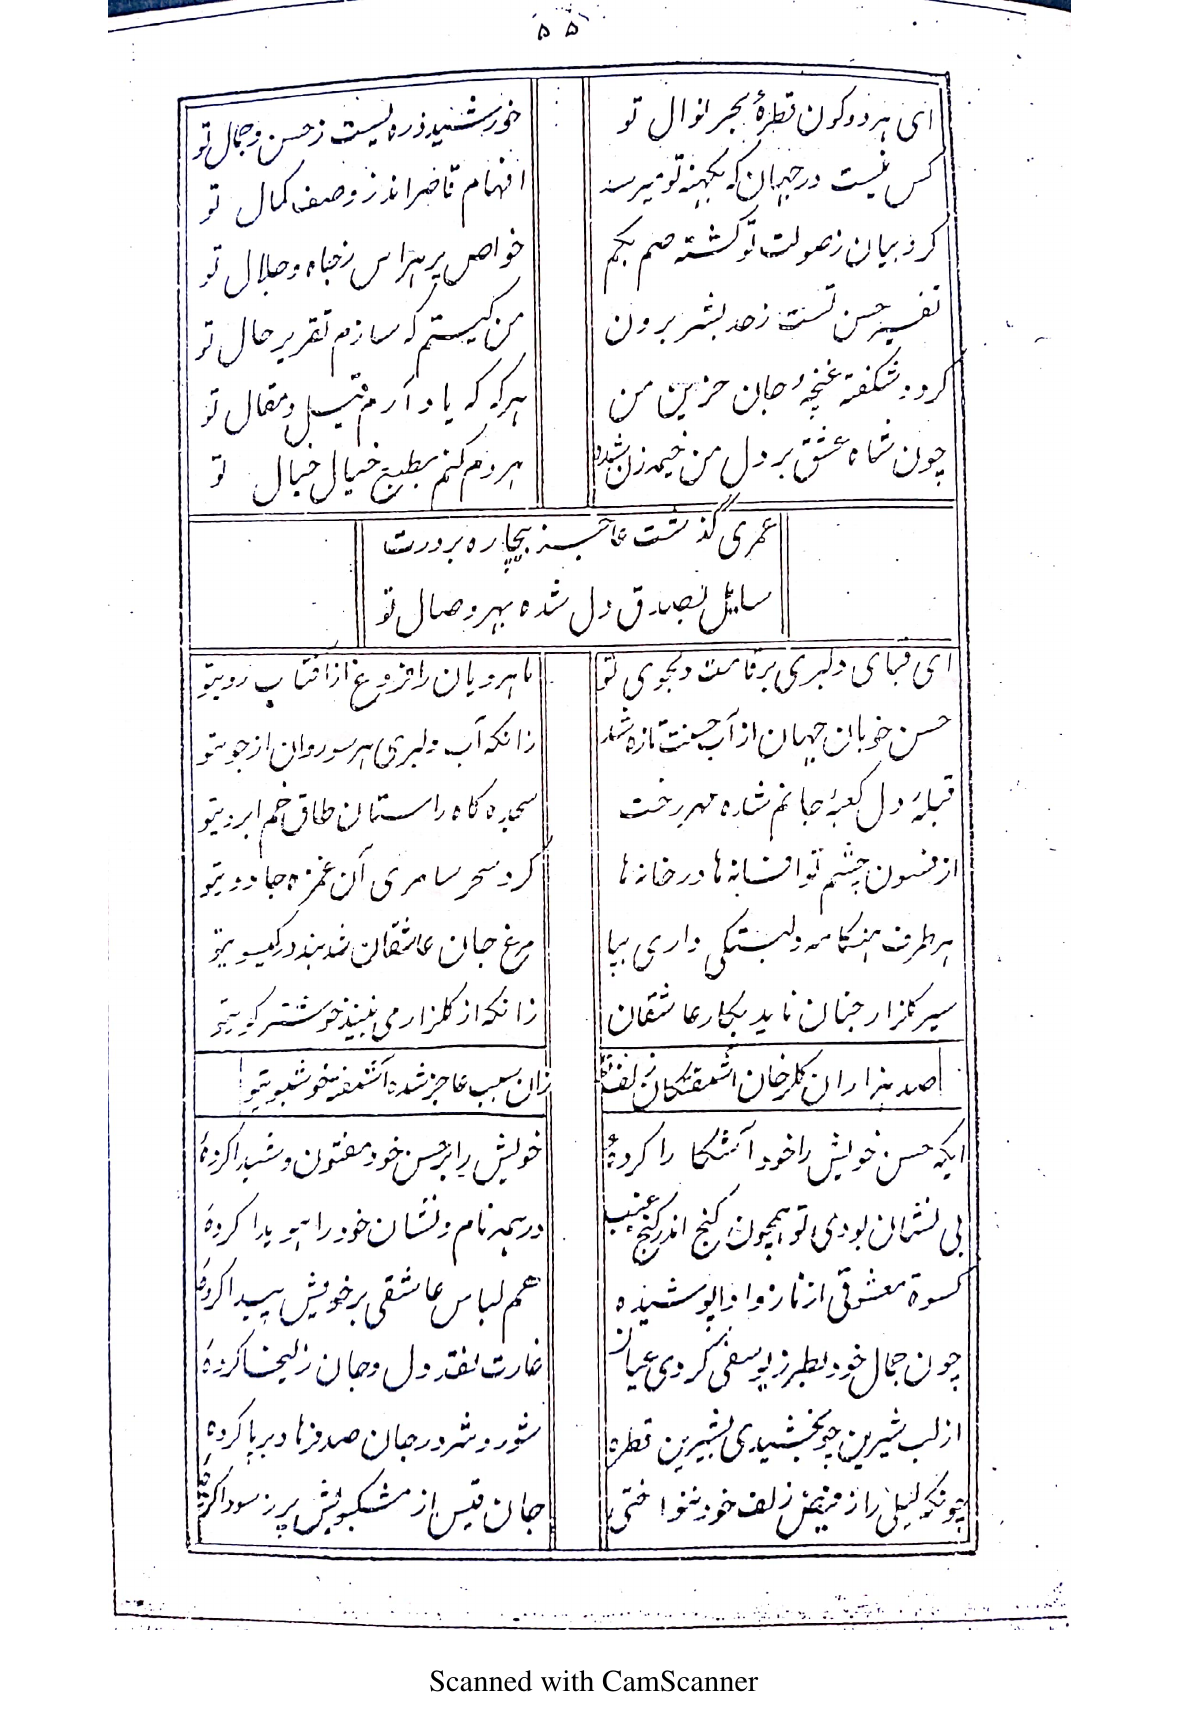 ۵۵
ای هر دو کون قطرهٔ بحر نوال تو
خورشید ذره ایست ز حسن و جمال تو
کس نیست در جهان که بکنه تو میرسد
افهام قاصر اند ز وصف کمال تو
کروبیان ز صولت تو گشته صم بکم
خواص پر هراس ز جاه و جلال تو
تفسیر حسن تست ز حد بشر برون
من کیستم که سازم تقریر حال تو
گردد شگفته غنچهٔ جان حزین من
هرگه که یاد آرم قیل و مقال تو
چون شاه عشق بر دل من خیمه زن شده
هر دم کنم بطبع خیال خیال تو
عمری گذشت عاجز بیچاره بر درت
سایل بصدق دل شده بهر وصال تو
ای قبای دلبری بر قامت دلجوی تو
ماهرویان را فروغ از آفتاب رویتو
حسن خوبان جهان از آب حسنت تازه شد
زانکه آب دلبری هر سو روان از جویتو
قبلهٔ دل کعبهٔ جانم شده مهر رخت
سجده گاه راستان طاق خم ابرویتو
از فسون چشم تو افسانه ها در خانه ها
کرد سحر سامری آن غمزه جادویتو
هر طرف هنگامه دلبستگی داری بپا
مرغ جان عاشقان شد بند در گیسویتو
سیر گلزار جنان ناید بکار عاشقان
زانکه از گلزار می بینند خوشتر کویتو
صد هزاران گلرخان آشفتگان زلف تو
زان سبب عاجز شده آشفته خوشبویتو
ایکه حسن خویش را خود آشکارا کردهٔ
خویش را بر حسن خود مفتون و شیدا کردهٔ
بی نشان بودی تو همچون گنج اندر کنج غیب
در همه نام و نشان خود را هویدا کردهٔ
کسوة معشوقی از ناز و ادا پوشیده
هم لباس عاشقی بر خویش پیدا کردهٔ
چون جمال خود بطرز یوسفی کردی عیان
غارت نقد دل و جان زلیخا کردهٔ
از لب شیرین چو بخشیدی بشیرین قطره
شور و شر در جان صد فرهاد بر پا کردهٔ
چونکه لیلی را ز فیض زلف خود بنواختی
جان قیس از مشکبویش پر ز سودا کردهٔ
Scanned with CamScanner